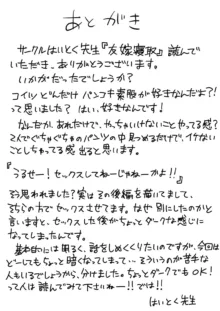 あとがき
サークルはいとく先生『友嫁寝取』読んで
いただき、ありがとうございます。
いかがだったでしょうか?
コイツどんだけパンコキ素股が好きなんだよ?!
って思いました? はい、好きなんです!
なんだか、あれだけで、やっちゃいけないことやってる感?
2人でぐちゃぐちゃのパンツの中見つめるだけで、イケない
ことしちゃってる感出ると思います。
『うるせー!セックスしてねーじゃねーかよ!!』
そう思われました?実はその後編を描いてまして、
そちらの方でセックスさせてます。なぜ別にしたのかと
言いますと、セックスした後がちょっとダークな感じに
なってしまったんです。
基本的には明るく、話をしめくくりたいのですが、今回は
どーしてもちょっと暗くなってしまって… そういうのが苦手な
人もいるでしょうから、分けました。ちょっとダークでもOK!
って人は読んでみて下さいねー!!では!!
はいとく先生